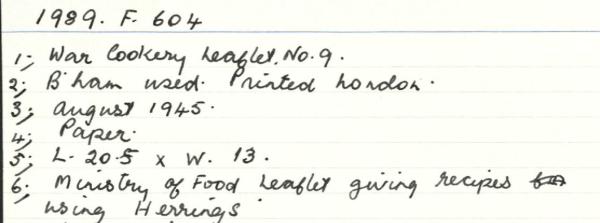 1989. F. 604
1; War Cookery Leaflet. No. 9.
2; B'ham used. Printed London.
3; August 1945.
4; Paper.
5; L. 20.5 x W. 13.
6; Ministry of Food Leaflet giving recipes
using Herrings